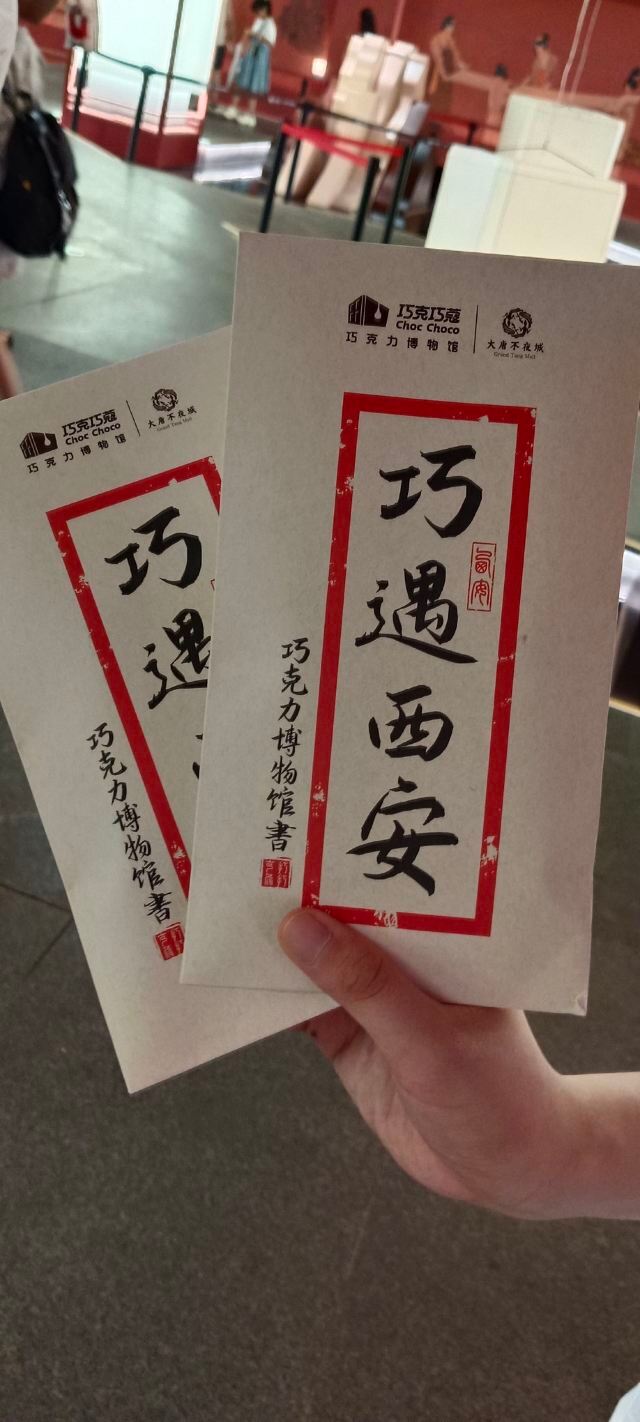 巧克巧蔻
Choc Choco
巧克力博物馆
大唐不夜城
Grand Tang Mall
巧遇西安
西安
巧克力博物馆書
巧克巧蔻
Choc Choco
巧克力博物馆
大唐不夜城
Grand Tang Mall
巧遇
巧克力博物馆書